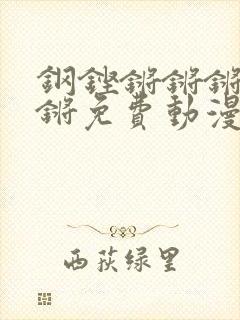 鋼铿锵锵锵
锵免費動漫
西荻绿里